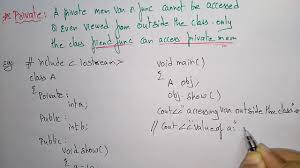 * Private: A private mem var & func cannot be accessed
& even viewed from outside the class. only
the class friend func can access private mem
eg: # include <iostream>
class A
{
Private:
int a;
Public:
int b;
Public:
void show()
{
void main()
{
A obj;
obj.show()
cout<<"accessing var outside the class"
// Cout<<"value of a:"